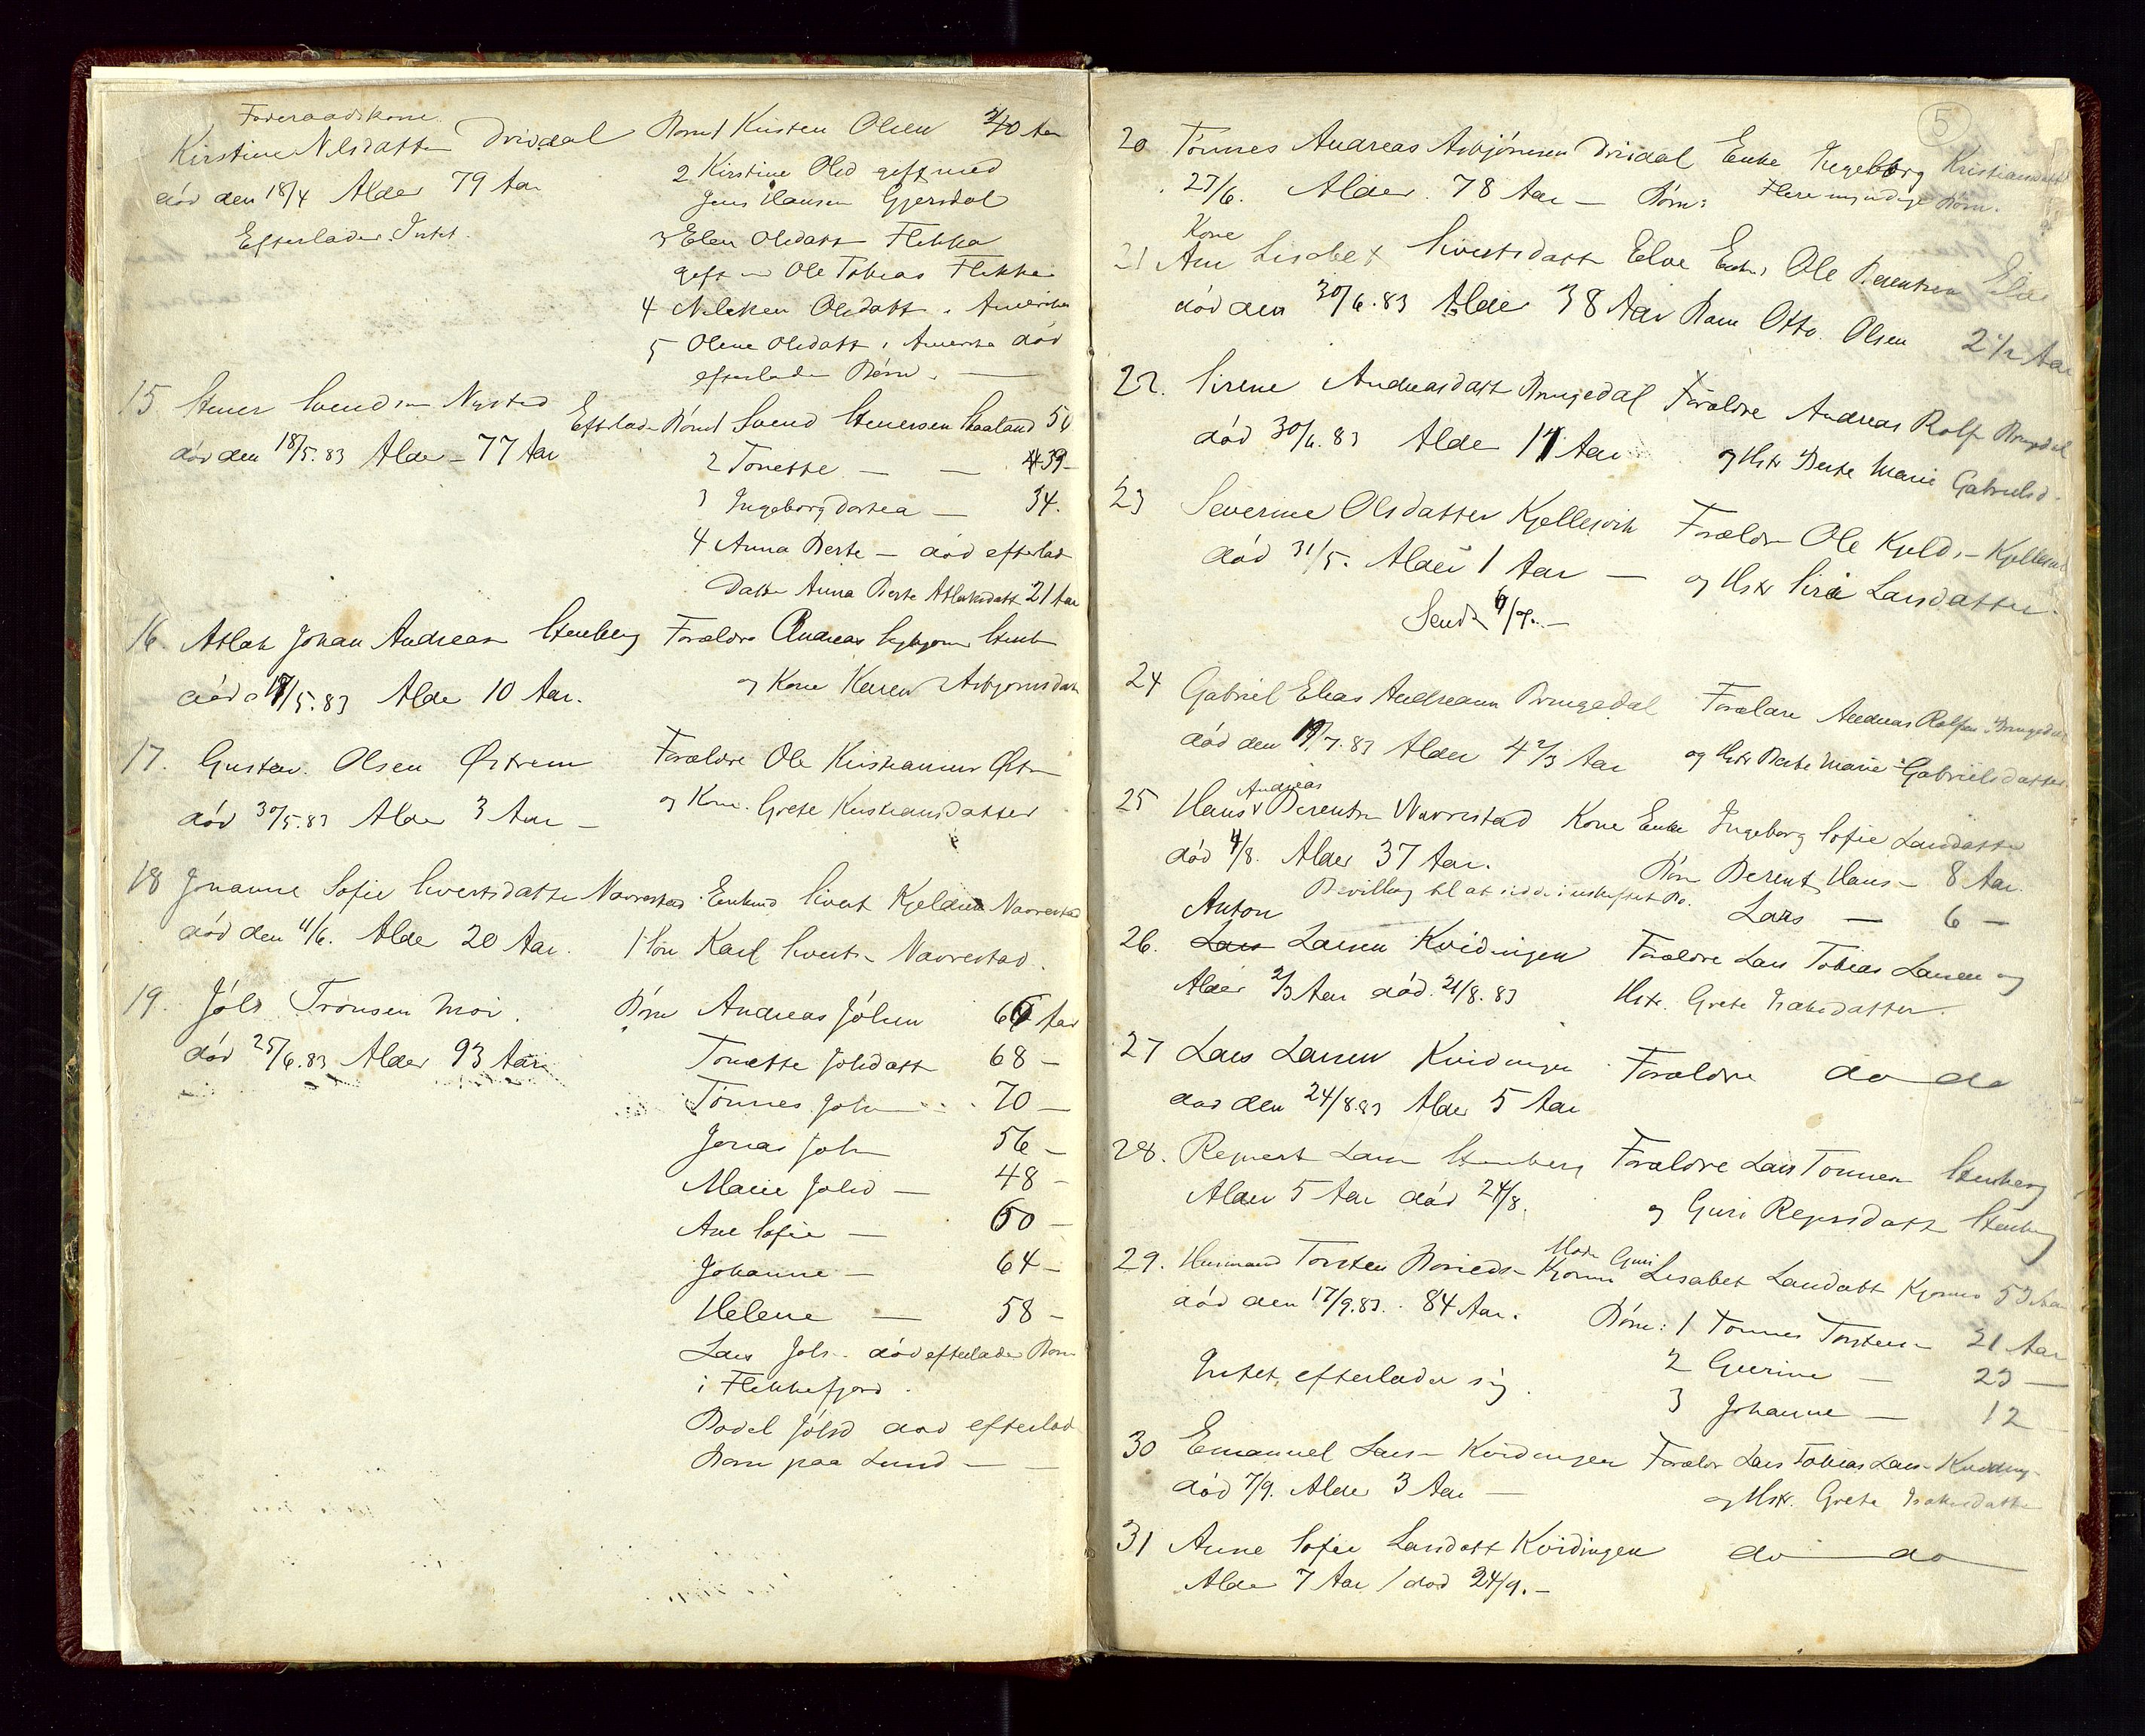 Føderaadskone
Kirstine Nilsdatter Drivdal Børn 1 Kristen Olsen 40 Aar
død den 18/4 Alder 79 Aar
2 Kirstine Olsd gift med
Jens Hansen Gjersdal
Efterlader Intet.
3 Elen Olsdatt Flekka
gift m Ole Tobias Flikka
4 Olsdatt i Amerika
5 Olene Olsdatt i Amerika død
efterlader Børn. —
15 Stener Svendsen Nysted Efterlader Børn 1 Svend Stenersen Haaland 50
død den 18/5.83 Alder 77 Aar
2 Tonette — — 39 —
3 Ingeborg Dortea — 34.
4 Anna Berte — død efterlad
Datter Anna Berte Aslaksdatt 21 Aar
16. Atlak Johan Andreasen Stenberg Forældre Andreas Stenb
død 17/5.83 Alder 10 Aar. og Kone Karen Asbjørnsdatt
17. Gustav. Olsen Østrem Forældre Ole Kristiansen Østr
død 30/5.83 Alder 3 Aar — og Kone. Grete Kristiansdatter
18 Johanne Sofie Sivertsdatter Navrestad Enkemd Sivert Kjeldsen Navrestad
død den 11/6. Alder 20 Aar. 1 Søn Karl Sivertsen Navrestad.
19. Jóls Trónsen Moi. Børn Andreas Jólsen 66 Aar
død 25/6.83 Alder 93 Aar
Tonette Jolsdatt 68 —
Tønnes Jols 70 —
Jonas Jols 56 —
Marie Jolsd — 48 —
Ane Sofie — 60 —
Johanne — 64 —
Helene — 58 —
Lars Jols - død efterlader Børn
i Flekkefjord.
Bodel Jólsd død efterlad
Børn paa Lund — —
5
20 Tønnes Andreas Asbjörnsen Drivdal Enke Ingeborg Kristiansdatt
27/6. Alder 78 Aar — Børn: Flere myndige Børn.
Kone
21 Ane Lisabet Sivertsdatt Eloe Enkem Ole Berentsen Eloe
død den 30/6.83 Alder 38 Aar Barn Otto Olsen 2 1/2 Aar
22. Sirene Andreasdatt Bringedal Forældre Andreas Rolfs Bringedal
død 30/6.83 Alder 14 Aar og Hstr Berte Marie Gabrielsd.
23 Severine Olsdatter Kjellesvik Forældre Ole Kjelds — Kjellesvik
død 31/5. Alder 1 Aar — og Hstr Siri Larsdatter.
Sendt 6/9. —
24 Gabriel Elias Andreasen Bringedal Forældre Andreas Rolfsen Bringedal
død den 19/7.83 Alder 4 2/3 Aar og Hstr Berte Marie Gabrielsdatter
Andreas
25 Hans Berentsen Navrestad Kone Enke Ingeborg Sofie Larsdatter
død 4/8. Alder 37 Aar. Børn Berent Hans — 8 Aar.
Bevilling til at sidde i uskiftet Bo. Lars — 6 —
Anton
26. Lars Larsen Kvidingen Forældre Lars Tobias Larsen og
Alder 2/3 Aar død 21/8.83 Hstr. Grete Isaksdatter.
27 Lars Larsen Kvidingen Forældre do do
død den 24/8.83 Alder 5 Aar
28. Repnert Larsen Stenberg Forældre Lars Tonnesen Stenberg
Alder 5 Aar død 24/8. og Guri Repnsdatt Stenberg
Moder Guri
29. Husmand Torsten Lisabet Larsdatt 53 Aar
død den 17/9.83. 84 Aar. Børn: 1 Tonnes Torstensen 21 Aar
Intet efterlader sig. 2 Gurine — 23 —
3 Johanne — 12
30 Emanuel Larsen Kvidingen Foreldr Lars Tobias Larsen Kviding
død 7/9. Alder 3 Aar — og Hstr. Grete Isaksdatter
31 Anne Sofie Larsdatt Kvidingen do do
Alder 7 Aar / død 24/9. —